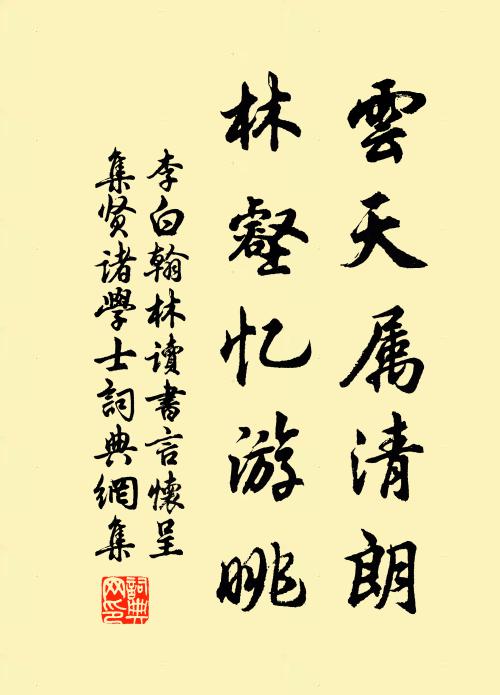 雲天属清朗
林壑忆游眺
李白翰林讀書言懷呈
集贤诸學士詞典網集